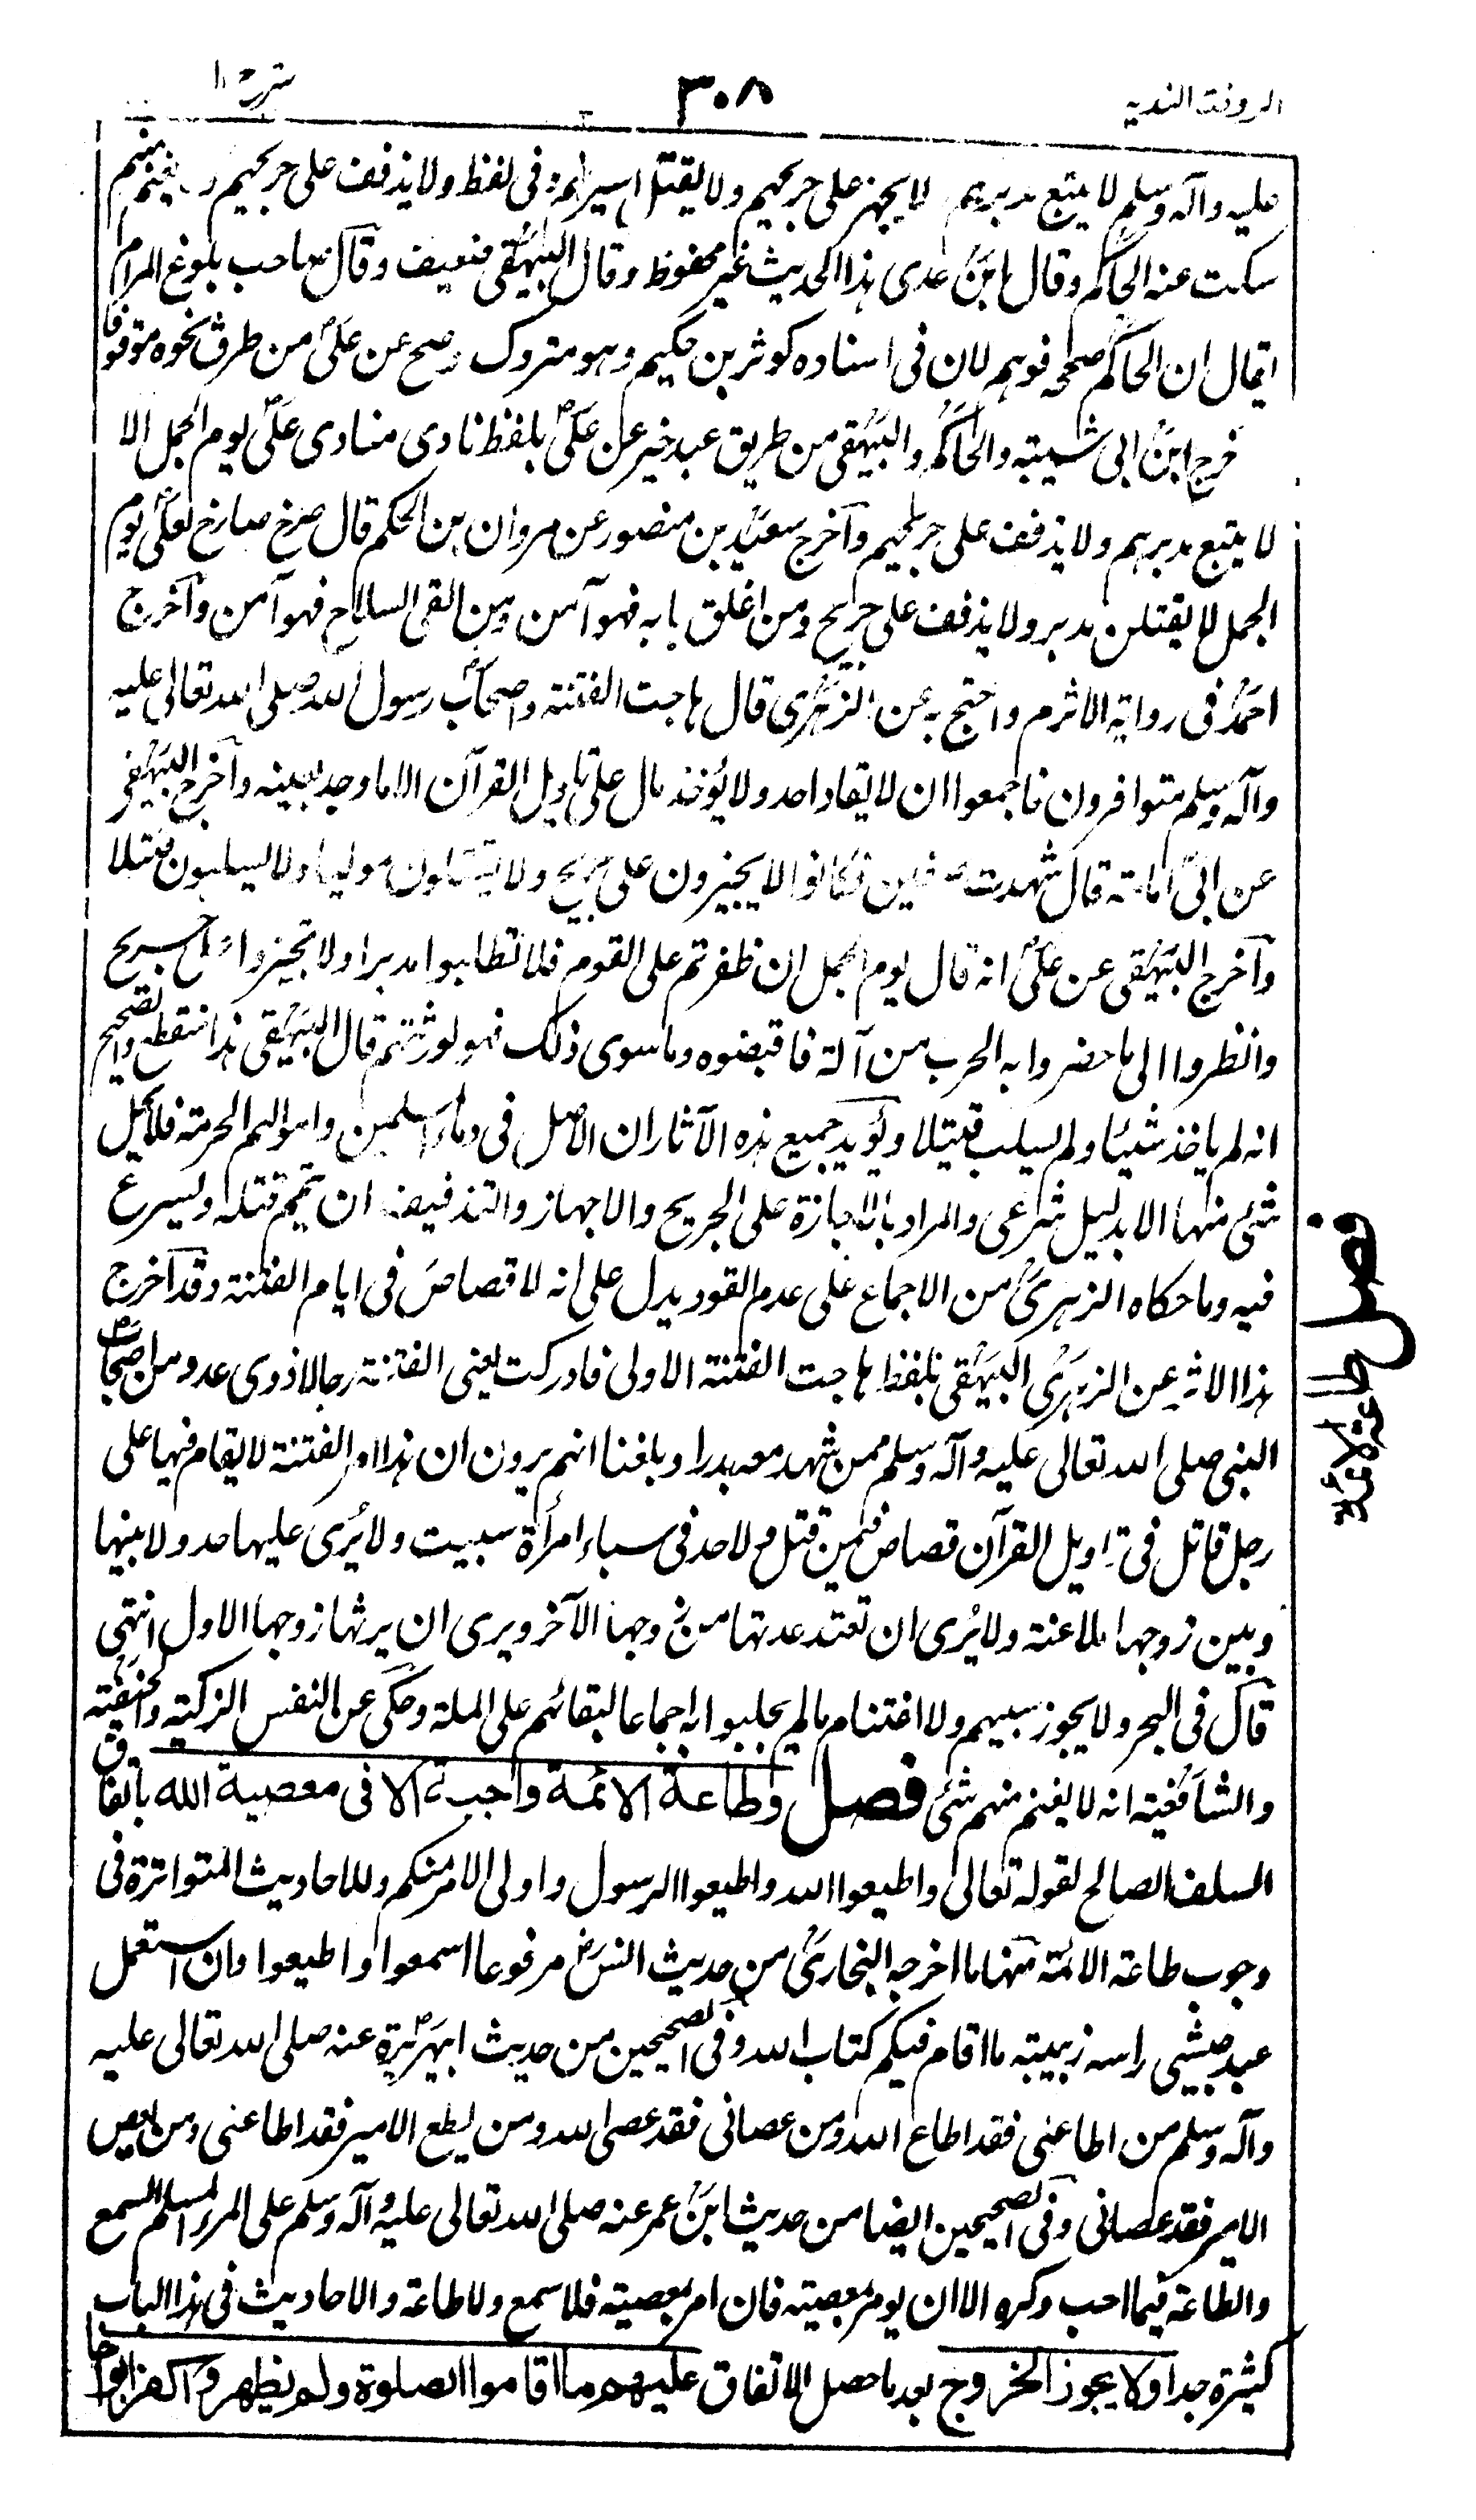 الروضة الندية
٣٠٨
شرح
عليه وآله وسلم لا يتبع مدبرهم لا يجهز على جريحهم ولا يقتل اسيرهم وفى لفظ ولا يذفف على جريحهم ولا يغنم منهم
سكت عنه الحاكم وقال ابن عدى هذا الحديث غير محفوظ وقال البيهقى ضعيف وقال صاحب بلوغ المرام
يقال ان الحاكم صححه فوهم لان فى اسناده كوثر بن حكيم وهو متروك وصح عن على من طرق نحوه موقوفا
خرج ابن ابى شيبة والحاكم والبيهقى من طريق عبد خير عن على بلفظ نادى منادى على يوم الجمل الا
لا يتبع مدبرهم ولا يذفف على جريحهم وآخرج سعيد بن منصور عن مروان بن الحكم قال صرخ صارخ لعلى يوم
الجمل لا يقتلن مدبر ولا يذفف على جريح ومن اغلق بابه فهو آمن ومن القى السلاح فهو آمن وآخرج
احمد فى رواية الاثرم واحتج به عن الزهرى قال هاجت الفتنة واصحاب رسول الله صلى الله تعالى عليه
وآله وسلم متوافرون فاجمعوا ان لا يقاد احد ولا يؤخذ مال على تاويل القرآن الا ما وجد بعينه وآخرج البيهقى
عن ابى امامة قال شهدت صفين فكانوا لا يجيزون على جريح ولا يقتلون موليا ولا يسلبون قتيلا
وآخرج البيهقى عن على انه قال يوم الجمل ان ظفرتم على القوم فلا تطلبوا مدبرا ولا تجيزوا على جريح
وانظروا الى ما حضروا به الحرب من آلة فاقبضوه وما سوى ذلك فهو لورثتهم قال البيهقى هذا منقطع والصحيح
انه لم ياخذ شيئا ولم يسلب قتيلا ويؤيد جميع هذه الآثار ان الاصل فى دماء المسلمين واموالهم الحرمة فلا يحل
شئ منها الا بدليل شرعى والمراد بالاجازة على الجريح والاجهاز والتذفيف ان يتمم قتله ويسرع
فيه وما حكاه الزهرى من الاجماع على عدم القود يدل على انه لا قصاص فى ايام الفتنة وقد آخرج
هذا الاثر عن الزهرى البيهقى بلفظ هاجت الفتنة الاولى فادركت يعنى الفتنة رجالا ذوى عدد من اصحاب
النبى صلى الله تعالى عليه وآله وسلم ممن شهد معه بدرا وبلغنا انهم يرون ان هذا امر الفتنة لا يقام فيها على
رجل قاتل فى تاويل القرآن قصاص فيمن قتل ولا حد فى سباء امرأة سبيت ولا يُرى عليها حد ولا بينها
وبين زوجها ملاعنة ولا يُرى ان تعتد عدتها من زوجها الآخر ويرى ان يرثها زوجها الاول انتهى
قال فى البحر ولا يجوز سبيهم ولا اغتنام ما لم يجلبوا به اجماعا لبقائهم على الملة وحكى عن النفس الزكية والحنفية
والشافعية انه لا يغنم منهم شئ فصل وطاعة الائمة واجبة الا فى معصية الله باتفاق
السلف الصالح لقوله تعالى واطيعوا الله واطيعوا الرسول واولى الامر منكم وللاحاديث المتواترة فى
وجوب طاعة الائمة منها ما اخرجه البخارى من حديث انس مرفوعا اسمعوا واطيعوا وان استعمل
عبد حبشى راسه زبيبة ما اقام فيكم كتاب الله وفى الصحيحين من حديث ابيهريرة عنه صلى الله تعالى عليه
وآله وسلم من اطاعنى فقد اطاع الله ومن عصانى فقد عصى الله ومن يطع الامير فقد اطاعنى ومن يعص
الامير فقد عصانى وفى الصحيحين ايضا من حديث ابن عمر عنه صلى الله تعالى عليه وآله وسلم على المرء المسلم السمع
والطاعة فيما احب وكره الا ان يومر بمعصية فان امر بمعصية فلا سمع ولا طاعة والاحاديث فى هذا الباب
كثيرة جدا ولا يجوز الخروج بعد ما حصل الاتفاق عليهم ما اقاموا الصلوة ولم يظهروا كفرا بواحا
فصل طاعة الائمة